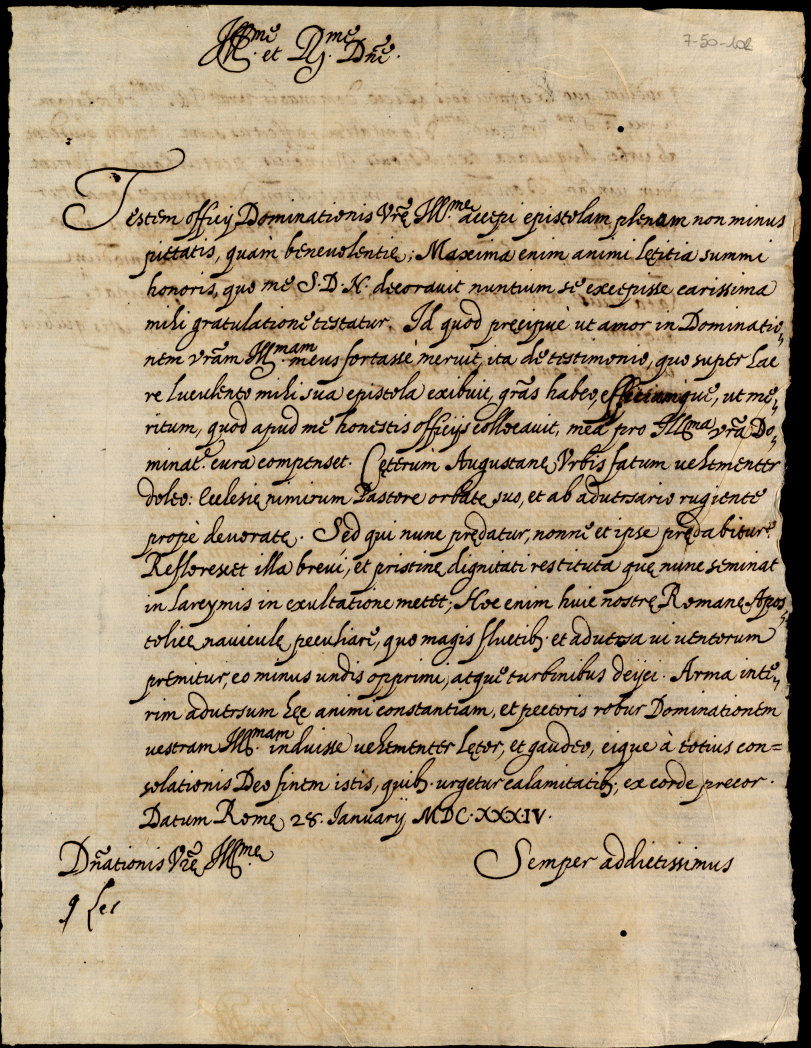 Ill.me et R.me Dnē.
7-50-102
Testem officij Dominationis Vrę Ill.me accepi epistolam plenam non minus
pietatis, quàm benevolentię; Maxima enim animi lętitia summi
honoris, quo me S.D.N. decorauit nuntium se excepisse carissima
mihi gratulatione testatur. Id quod precipuè ut amor in Dominatio-
nem vrām Ill.mam meus fortassè meruit, ita de testimonio, quo super hac
re luculento mihi sua epistola exibuit, grās habeo, efficiamque, ut me-
ritum, quod apud me honestis officijs collocauit, mea pro Ill.ma vrā Do-
minat.e cura compenset. Cęterùm Augustanę Vrbis fatum uehementer
doleo: Ecclesię nimirum Pastore orbatę suo, et ab aduersario rugiente
propè deuoratę. Sed qui nunc prędatur, nonnè et ipse prędabitur?
Reflorescet illa breui, et pristinę dignitati restituta quę nunc seminat
in lacrymis in exultatione metet; Hoc enim huic nostrę Romanę Apos-
tolicę nauiculę peculiare, quo magis fluctib. et aduersa ui uentorum
premitur, eo minus undis opprimi, atque turbinibus deijci. Arma inte-
rim aduersum hęc animi constantiam, et pectoris robur Dominationem
uestram Ill.mam induisse uehementer lętor, et gaudeo, eique à totius con=
solationis Deo finem istis, quib. urgetur calamitatib., ex corde precor.
Datum Romę 28. Ianuarij MDC.XXXIV.
Dn̄ationis Vrę Ill.me
Semper addictissimus